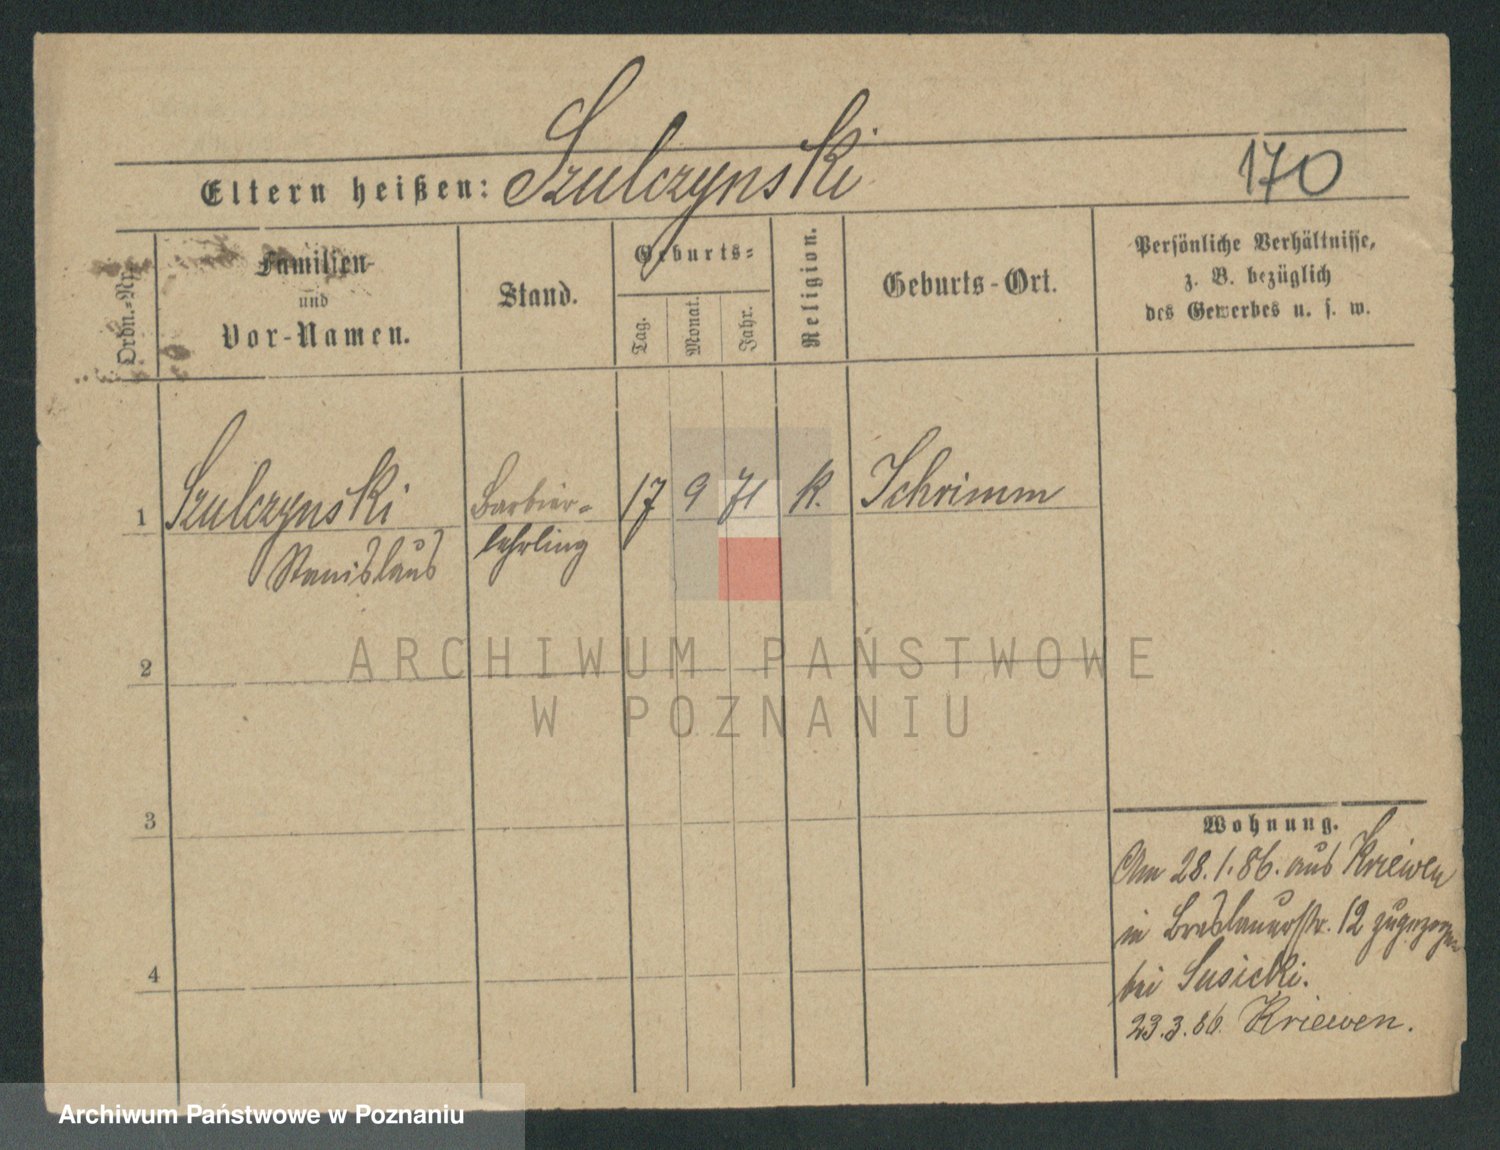 Eltern heißen: Szulczynski
170
Ordn.-Nr.
Familien-
und
Vor-Namen.
Stand.
Geburts-
Tag.
Monat.
Jahr.
Religion.
Geburts-Ort.
Persönliche Verhältnisse,
z. B. bezüglich
des Gewerbes u. s. w.
1 Szulczynski Barbier- 17 9 71 K. Schrimm
Stanislaus lehrling
2
3
4
Wohnung.
Am 28.1.86. aus Kriewen
in Breslauerstr. 12 zugezogen
bei Susicki.
23.3.86. Kriewen.
ARCHIWUM PAŃSTWOWE
W POZNANIU
Archiwum Państwowe w Poznaniu